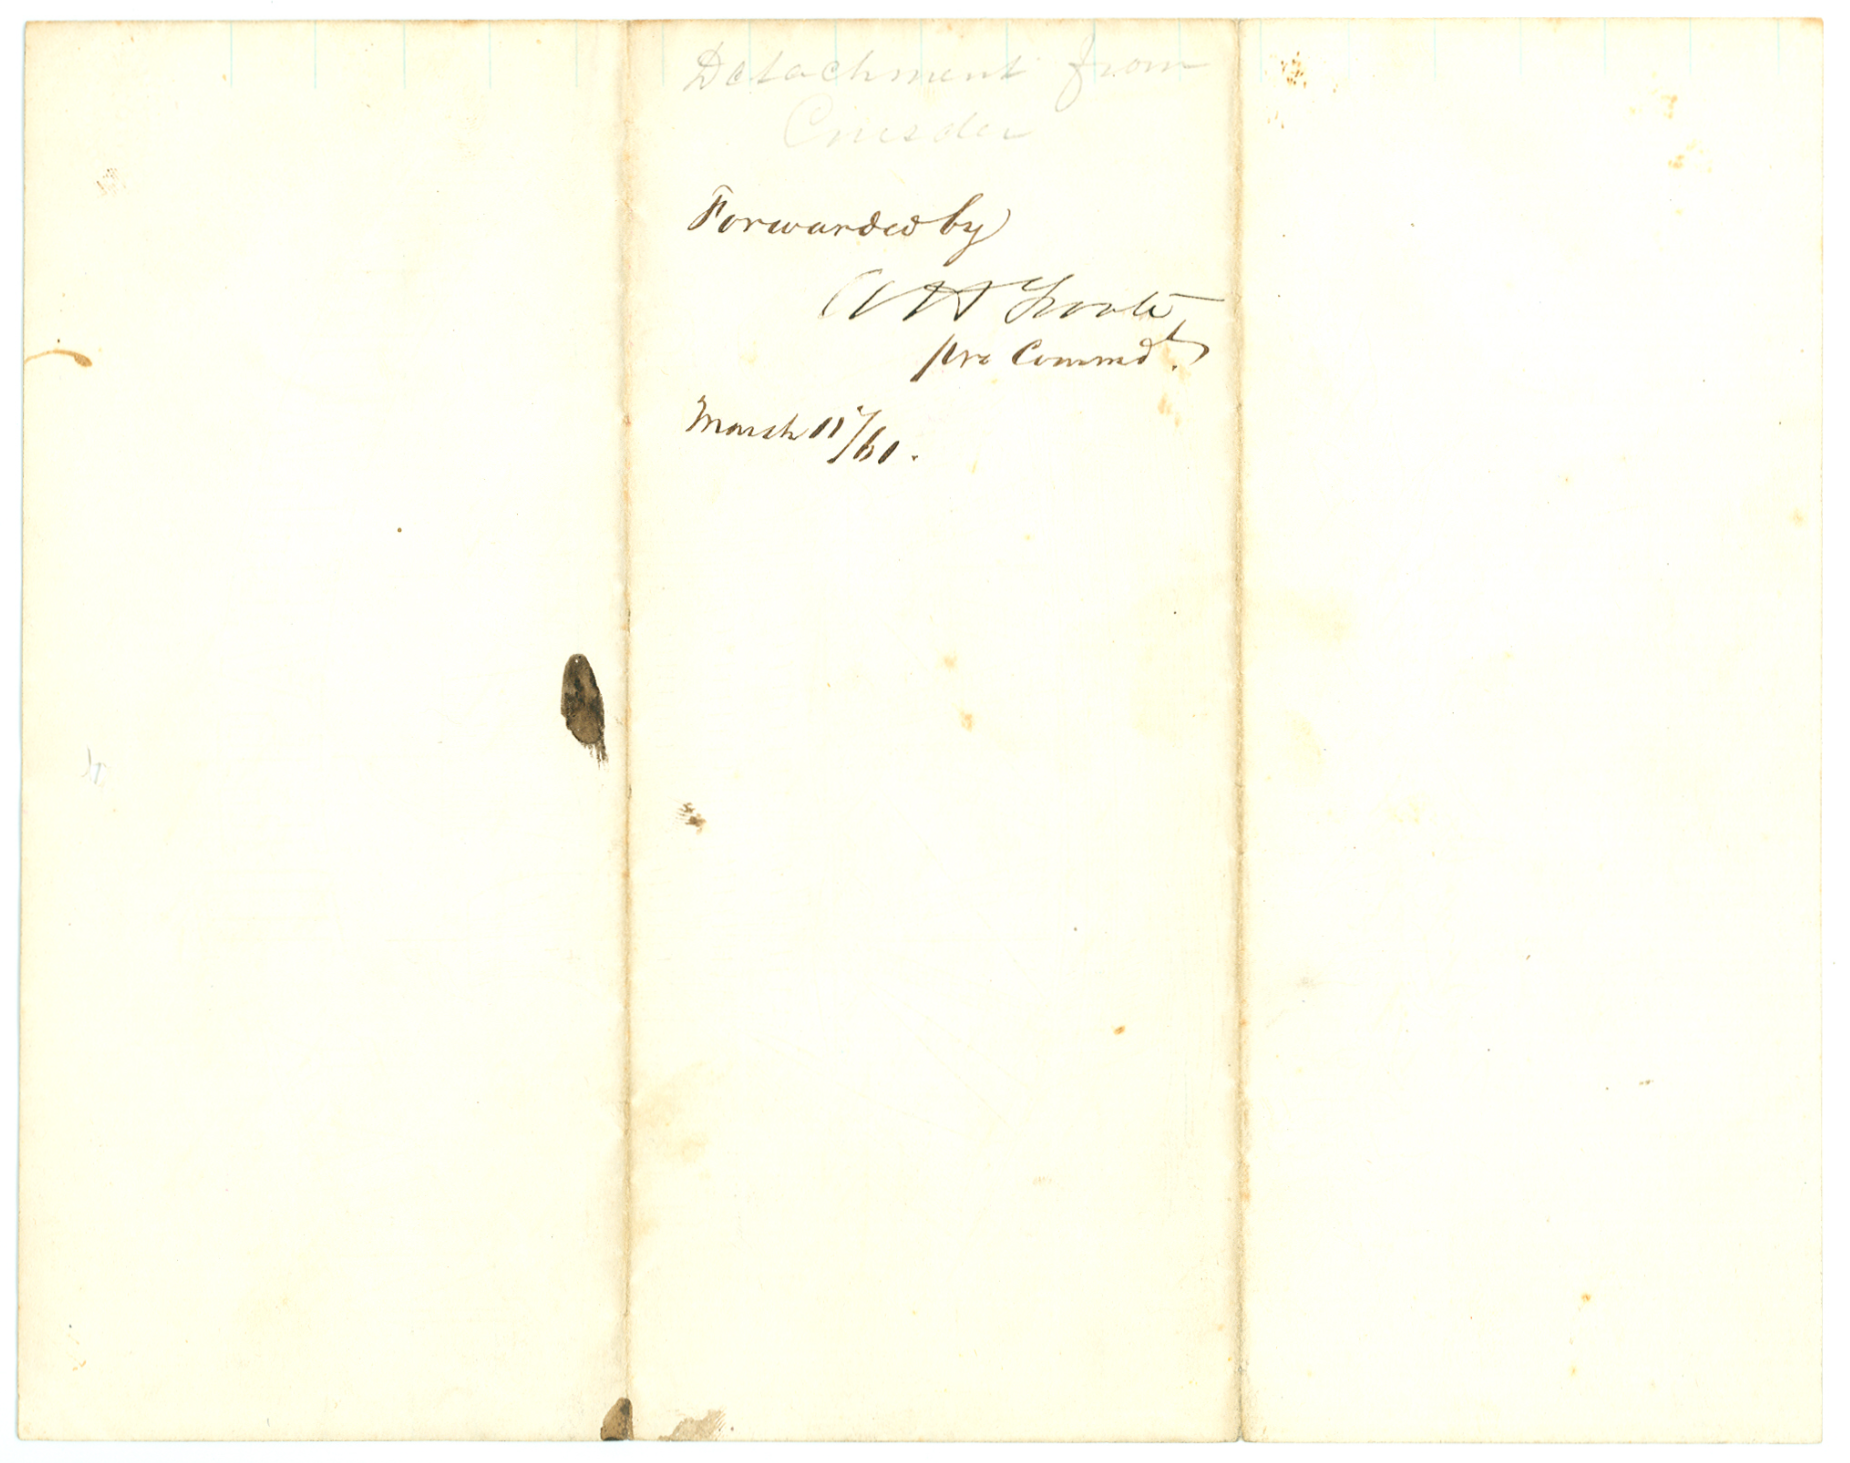 Detachment from
Crusder
Forwarded by
A H Foote
pro Commdt.
March 11/61.